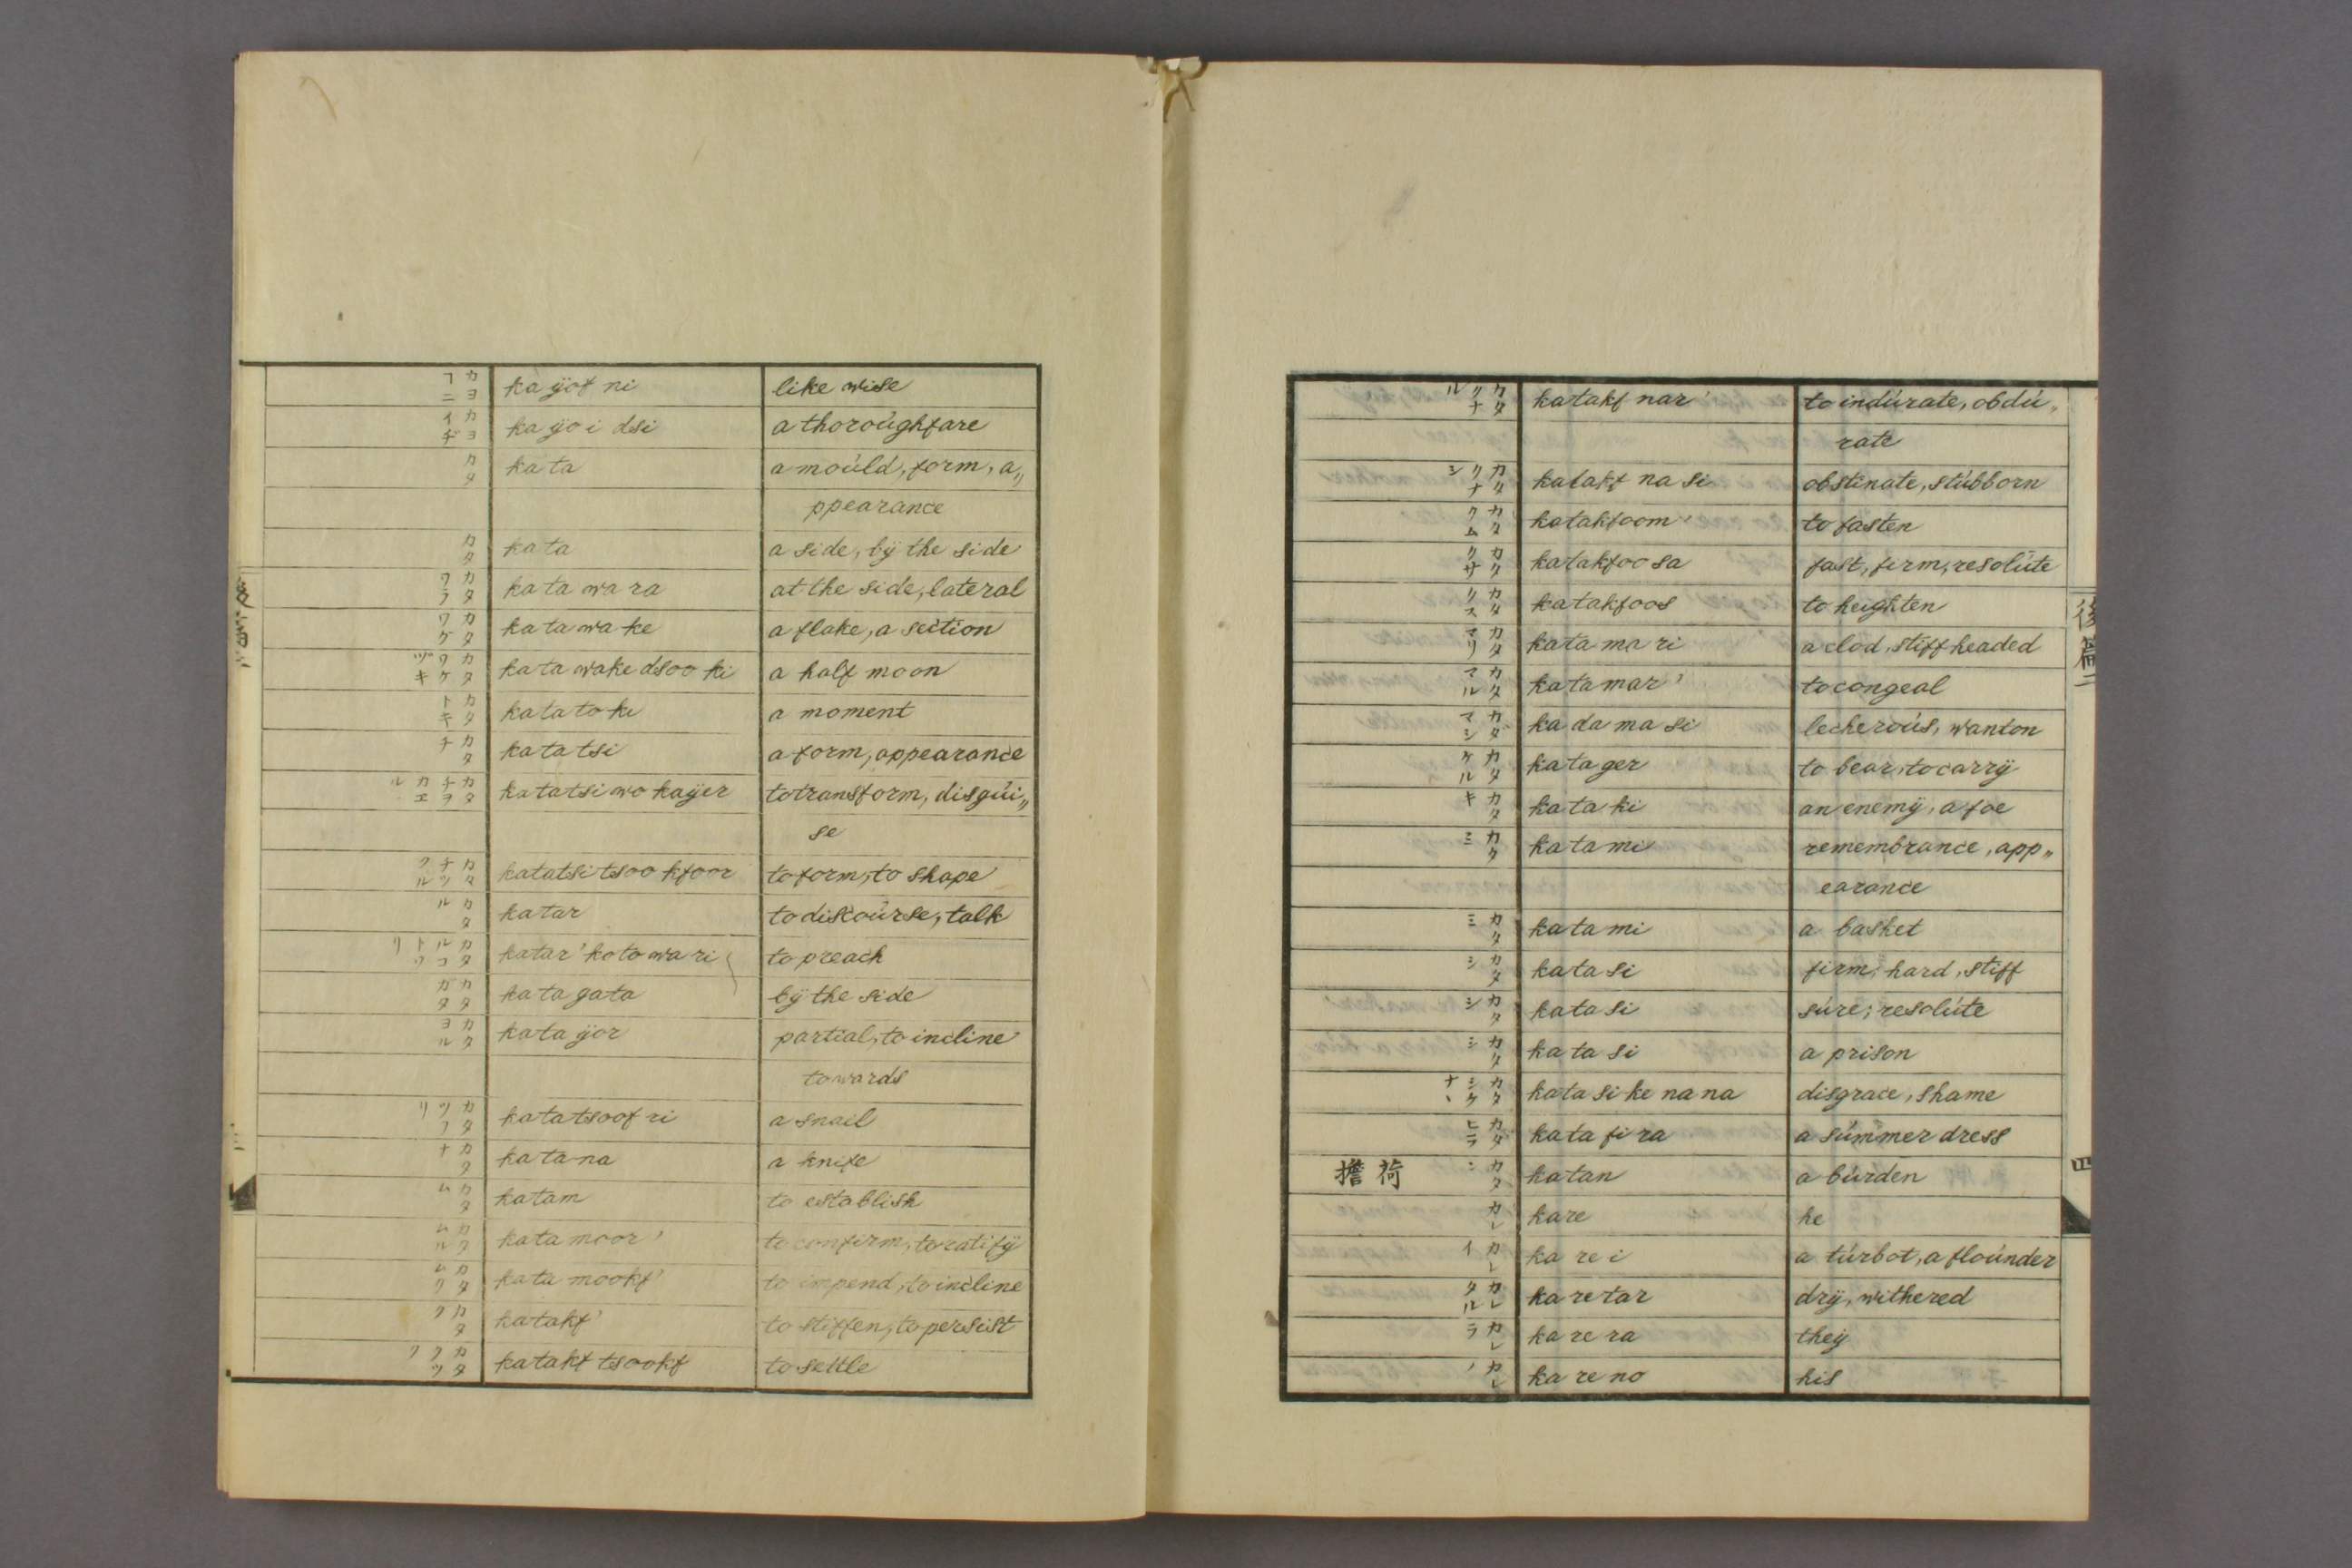 カヨフニ ka ÿof ni like wise
カヨイヂ ka ÿo i dsi a thoroúghfare
カタ ka ta a moúld, form, a„
ppearance
カタ ka ta a side, bÿ the side
カタワラ ka ta wa ra at the side, lateral
カタワケ ka ta wa ke a flake, a section
カタワケヅキ ka ta wake dsoo ki a half moon
カタトキ ka ta to ki a moment
カタチ ka ta tsi a form, appearance
カタチヲカエル ka ta tsi wo kaÿer to transform, disgúi„
se
カタチツクル katatsi tsoo kfoor to form, to shape
カタル ka tar to discoúrse, talk
カタルコトワリ katar' koto wa ri to preach
カタガタ ka ta gata bÿ the side
カタヨル ka ta ÿor partial, to incline
towards
カタツフリ ka ta tsoof ri a snail
カタナ ka ta na a knife
カタム ka tam to establish
カタムル ka ta moor' to confirm, to ratifÿ
カタムク ka ta mookf' to impend, to incline
カタク ka takf' to stiffen, to persist
カタクツク ka takf tsookf to settle
カタクナル ka takf nar' to indúrate, obdú„
rate
カタクナシ ka takf na si obstinate, stúbborn
カタクム ka takfoom' to fasten
カタクサ ka takfoo sa fast, firm, resolúte
カタクス ka takfoos to heighten
カタマリ ka ta ma ri a clod, stiff headed
カタマル ka ta mar' to congeal
カダマシ ka da ma si lecheroús, wanton
カタケル ka ta ger to bear, to carrÿ
カタキ ka ta ki an enemÿ, a foe
カタミ ka ta mi remembrance, app„
earance
カタミ ka ta mi a basket
カタシ ka ta si firm, hard, stiff
カタシ ka ta si súre, resolúte
カタシ ka ta si a prison
カタシケナヽ ka ta si ke na na disgrace, shame
カタヒラ ka ta fi ra a súmmer dress
荷擔 カタン ka tan a búrden
カレ ka re he
カレイ ka re i a túrbot, a floúnder
カレタル ka re tar drÿ, withered
カレラ ka re ra theÿ
カレノ ka re no his
四